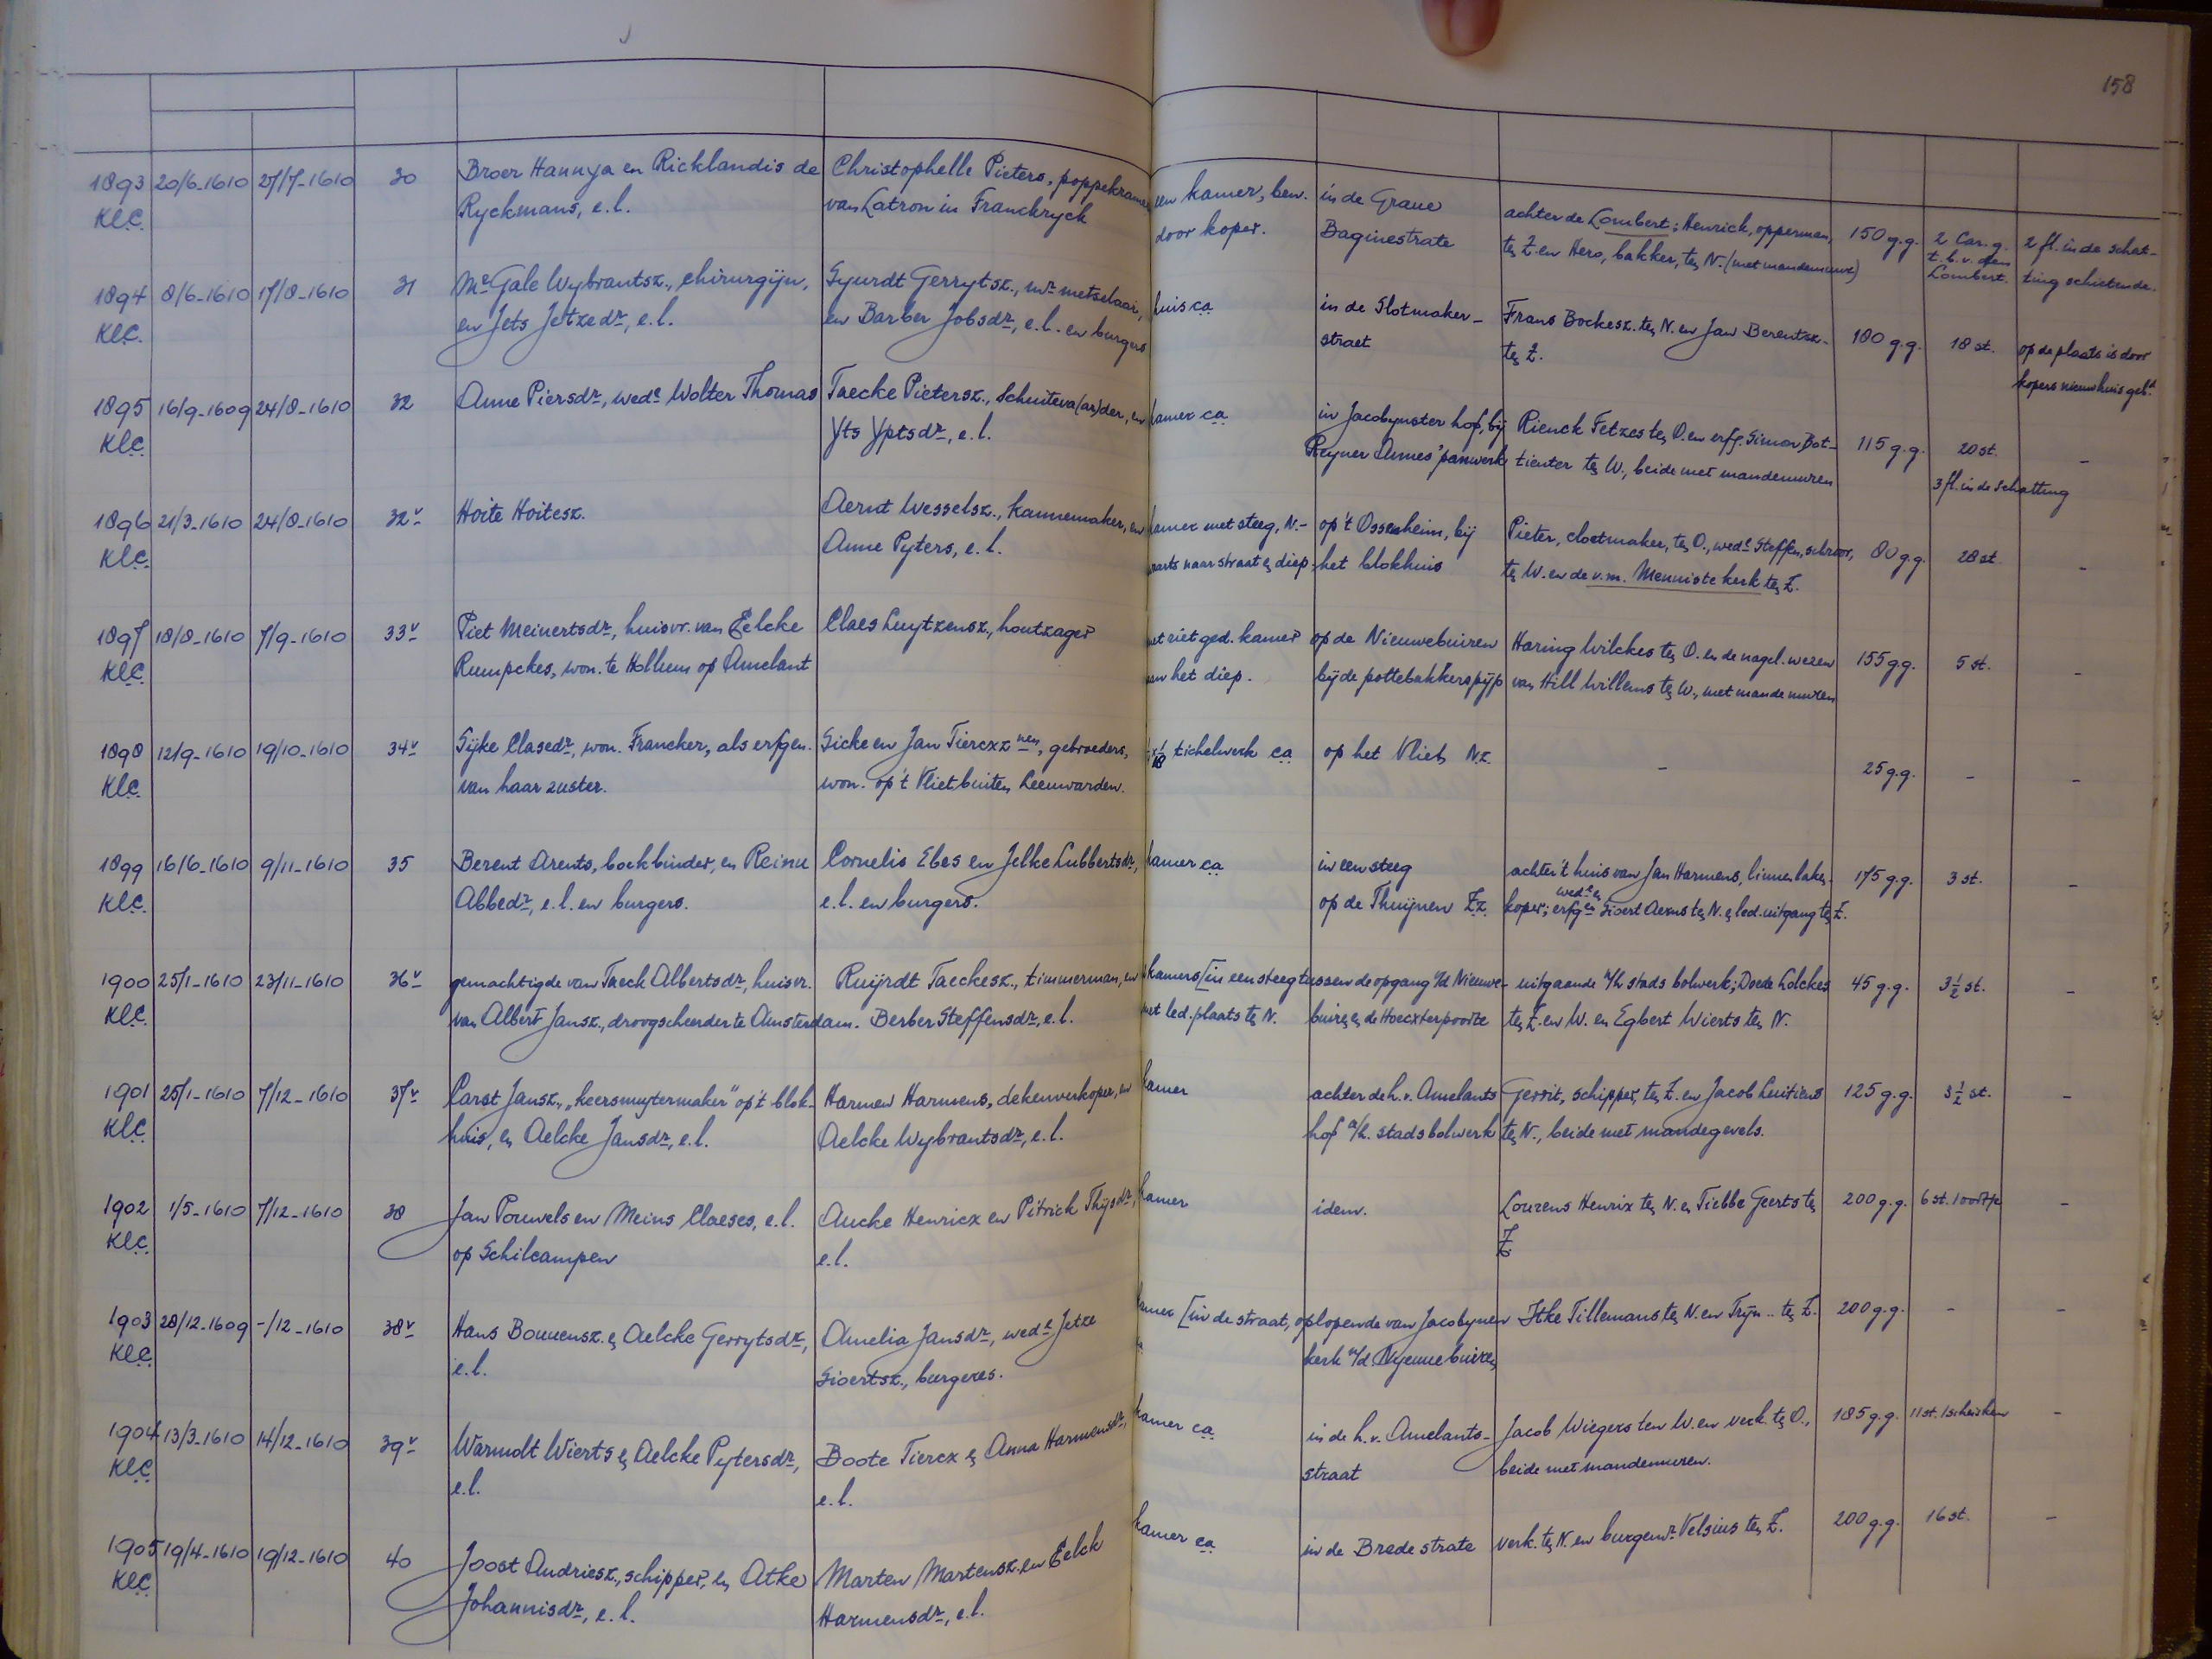 158
1893 20/6-1610 27/7-1610 30 Broer Hannya en Ricklandis de Christophelle Pieters, poppekramer een kamer, bew. in de Graue achter de Lombert; Henrick, opperman, 150 g.g. 2 Car. g. 2 fl. in de schat-
KLC. Ryckmans, e.l. van Latron in Franckryck door koper. Baginestrate te Z. en Hero, bakker, te N. (met mandemuur) t.b.v. den Lombert. ting schietende.
1894 8/6-1610 17/8-1610 31 Mr Gale Wybrantsz., chirurgijn, Sjurdt Gerrytsz., mr metselaar, huis ca in de Slotmaker- Frans Bockesz. te N. en Jan Berentsz. 180 g.g. 18 st. op de plaats is door
KLC. en Jets Jetzedr, e.l. en Barber Jobsdr, e.l. en burgers straet te Z. kopers nieuw huis geb.t
1895 16/9-1609 24/8-1610 32 Anne Piersdr, wede Wolter Thomas Taecke Pietersz., schuiteva(ar)der, en kamer ca in Jacobynster hof, bij Rienck Fetzes te O. en erfg. Simon Bot- 115 g.g. 20 st. -
KLC. Yts Yptsdr, e.l. Reyner Annes' panwerk tienter te W., beide met mandemuren 3 fl. in de schatting
1896 21/3-1610 24/8-1610 32v Hoite Hoitesz. Aernt Wesselsz., kannemaker, en kamer met steeg, N.- op 't Ossenheim, bij Pieter, clootmaker, te O., wede Steffen, schroor, 80 g.g. 28 st. -
KLC. Anne Pyters, e.l. waarts naar straat en diep. het blokhuis te W. en de v.m. Menniste kerk te Z.
1897 18/8-1610 7/9-1610 33v Piet Meinertsdr, huisvr. van Eelcke Claes Luytzensz., houtzager met riet ged. kamer op de Nieuwebuiren Haring Wilckes te O. en de nagel. wezen 155 g.g. 5 st. -
KLC. Rempckes, won. te Hollum op Amelant aan het diep. bij de pottebakkerspijp van Hill Willems te W., met mande muren
1898 12/9-1610 19/10-1610 34v Sijke Clasedr, won. Francker, als erfgen. Sicke en Jan Tierczznen, gebroeders, tichelwerk ca op het Vliet Nz. - 25 g.g. - -
KLC. van haar zuster. won. op 't Vliet buiten Leeuwarden.
1899 16/6-1610 9/11-1610 35 Berent Arents, boekbinder, en Reinu Cornelis Ebes en Jelke Lubbertsdr, kamer ca in een steeg achter 't huis van Jan Harmens, linnenlaken- 175 g.g. 3 st. -
KLC. Abbedr, e.l. en burgers. e.l. en burgers. op de Thuijnen Zz. koper; wede en erfgen Sioert Aerns te N. en led. uitgang te Z.
1900 25/1-1610 23/11-1610 36v gemachtigde van Taeck Albertsdr, huisvr. Ruijrdt Taeckesz., timmerman, en kamers [in een steeg tussen de opgang v/d Nieuwe- uitgaende a/h stads bolwerk; Doede Lolckes 45 g.g. 3½ st. -
KLC. van Albert Jansz., droogscheerder te Amsterdam. Berber Steffensdr, e.l. met led. plaats te N. buiren en de Hoecxterpoorte te Z. en W. en Egbert Wierts te N.
1901 25/1-1610 7/12-1610 37v Carst Jansz., "keersmuytermaker" op 't blok- Harmen Harmens, dekenverkoper, en kamer achter de h. v. Amelants Gerrit, schipper, te Z. en Jacob Luitiens 125 g.g. 3½ st. -
KLC. huis, en Aelcke Jansdr, e.l. Aelcke Wybrantsdr, e.l. hof a/h. stadsbolwerk te N., beide met mandegevels.
1902 1/5-1610 7/12-1610 38 Jan Pouwels en Meins Claeses, e.l. Aucke Henricx en Pitrick Thijsdr, kamer idem. Lourens Henrix te N. en Tiebbe Geerts te 200 g.g. 6 st. 1 oortje -
KLC. op Schilcampen e.l. Z.
1903 28/12-1609 -/12-1610 38v Hans Bouuensz. en Aelcke Gerrytsdr, Amelia Jansdr, wede Jetze kamer [in de straat, oplopende van Jacobynen Itke Tillemans te N. en Trijn .. te Z. 200 g.g. - -
KLC. e.l. Sioertsz., burgeres. kerk n/d. Nyeuwebuiren
1904 13/3-1610 14/12-1610 39v Warmolt Wierts en Aelcke Pytersdr, Boote Tiercx en Anna Harmensdr, kamer ca in de h. v. Amelants- Jacob Wiegers ten W. en verk. te O., 185 g.g. 11 st. -
KLC. e.l. e.l. straat beide met mandemuren.
1905 19/4-1610 19/12-1610 40 Joost Andriesz., schipper, en Atke Marten Martensz. en Eelck kamer ca in de Brede strate verk. te N. en burgemr Velsius te Z. 200 g.g. 16 st. -
KLC. Johannisdr, e.l. Harmensdr, e.l.